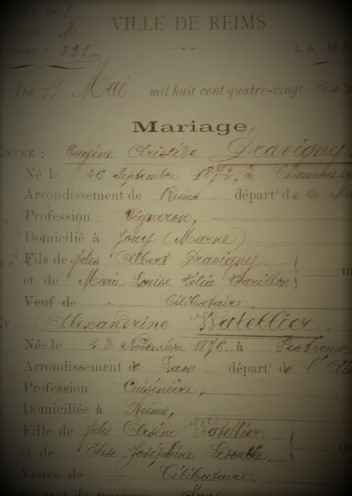 VILLE DE REIMS
LA MA
Du 11 Mai mil huit cent quatre-vingt
Mariage,
ENTRE : Eugène Aristide Dravigny
Né le 26 Septembre 1872, à
Arrondissement de Reims départ. de la
Profession Vigneron,
Domicilié à Jouy (Marne)
Fils de Jules Albert Dravigny
et de Marie Louise Hélia
Veuf de Célibataire.
ET Alexandrine Watellier.
Née le 23 Novembre 1876 à
Arrondissement de Laon départ. de l'
Profession Cuisinière,
Domiciliée à Reims,
Fille de Jules Arsène Watellier
et de Elise Joséphine
Veuve de Célibataire